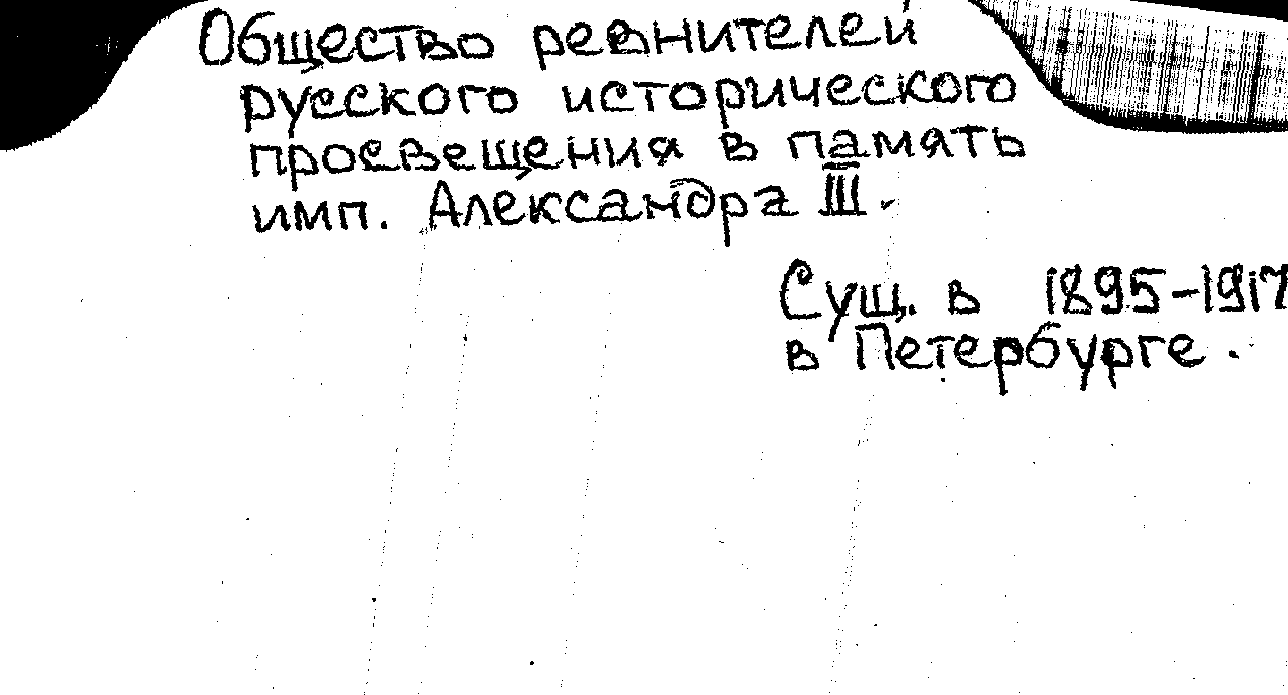 Общество ревнителей
русского исторического
просвещения в память
имп. Александра III.
Сущ. в 1895-1917
в Петербурге.